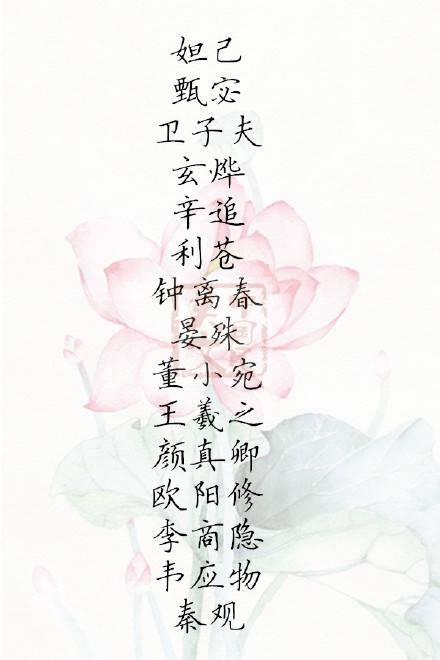 妲己
甄宓
卫子夫
玄烨
辛追
利苍
钟离春
晏殊
董小宛
王羲之
颜真卿
欧阳修
李商隐
韦应物
秦观